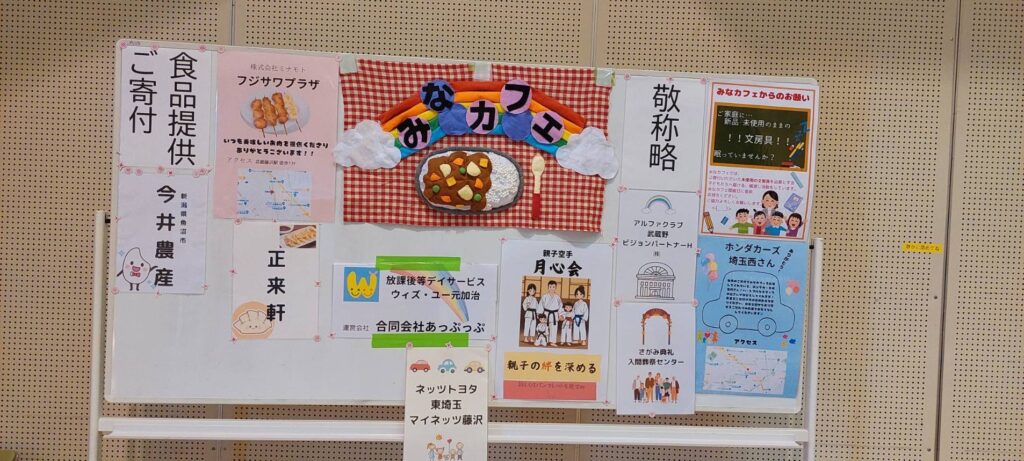 食品提供
ご寄付
新潟県魚沼市
今井農産
株式会社ミナモト
フジサワプラザ
いつも美味しいお肉を提供くださり
ありがとうございます!!
アクセス
正来軒
みなカフェ
放課後等デイサービス
ウィズ・ユー元加治
運営会社 合同会社あっぷっぷ
ネッツトヨタ
東埼玉
マイネッツ藤沢
親子空手
月心会
親子の絆を深める
敬称略
アルファクラブ
武蔵野
ビジョンパートナーH
㈱
さがみ典礼
入間葬祭センター
みなカフェからのお願い
ご家庭に…
新品 未使用のままの
!!文房具!!
眠っていませんか?
ホンダカーズ
埼玉西さん
アクセス